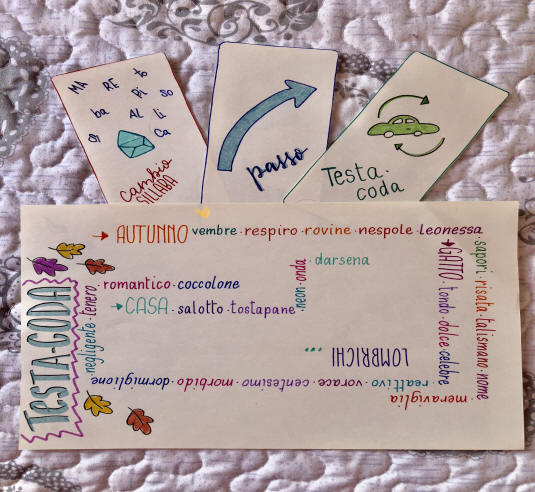 MA RE to
Pi so
ba AL Li
Si Ca
cambio
SILLABA
passo
Testa-
coda
TESTA-CODA
AUTUNNO vembre · respiro · rovine · nespole · leonessa
· sapori · risata · talismano · nome
meraviglia
GATTO · tondo · dolce · celebre
reattivo · vorace · centesimo · morbido · dormiglione
negligente · tenero
· romantico · coccolone
CASA · salotto · tostapane
· neon · onda
· darsena
LOMBRICHI ...